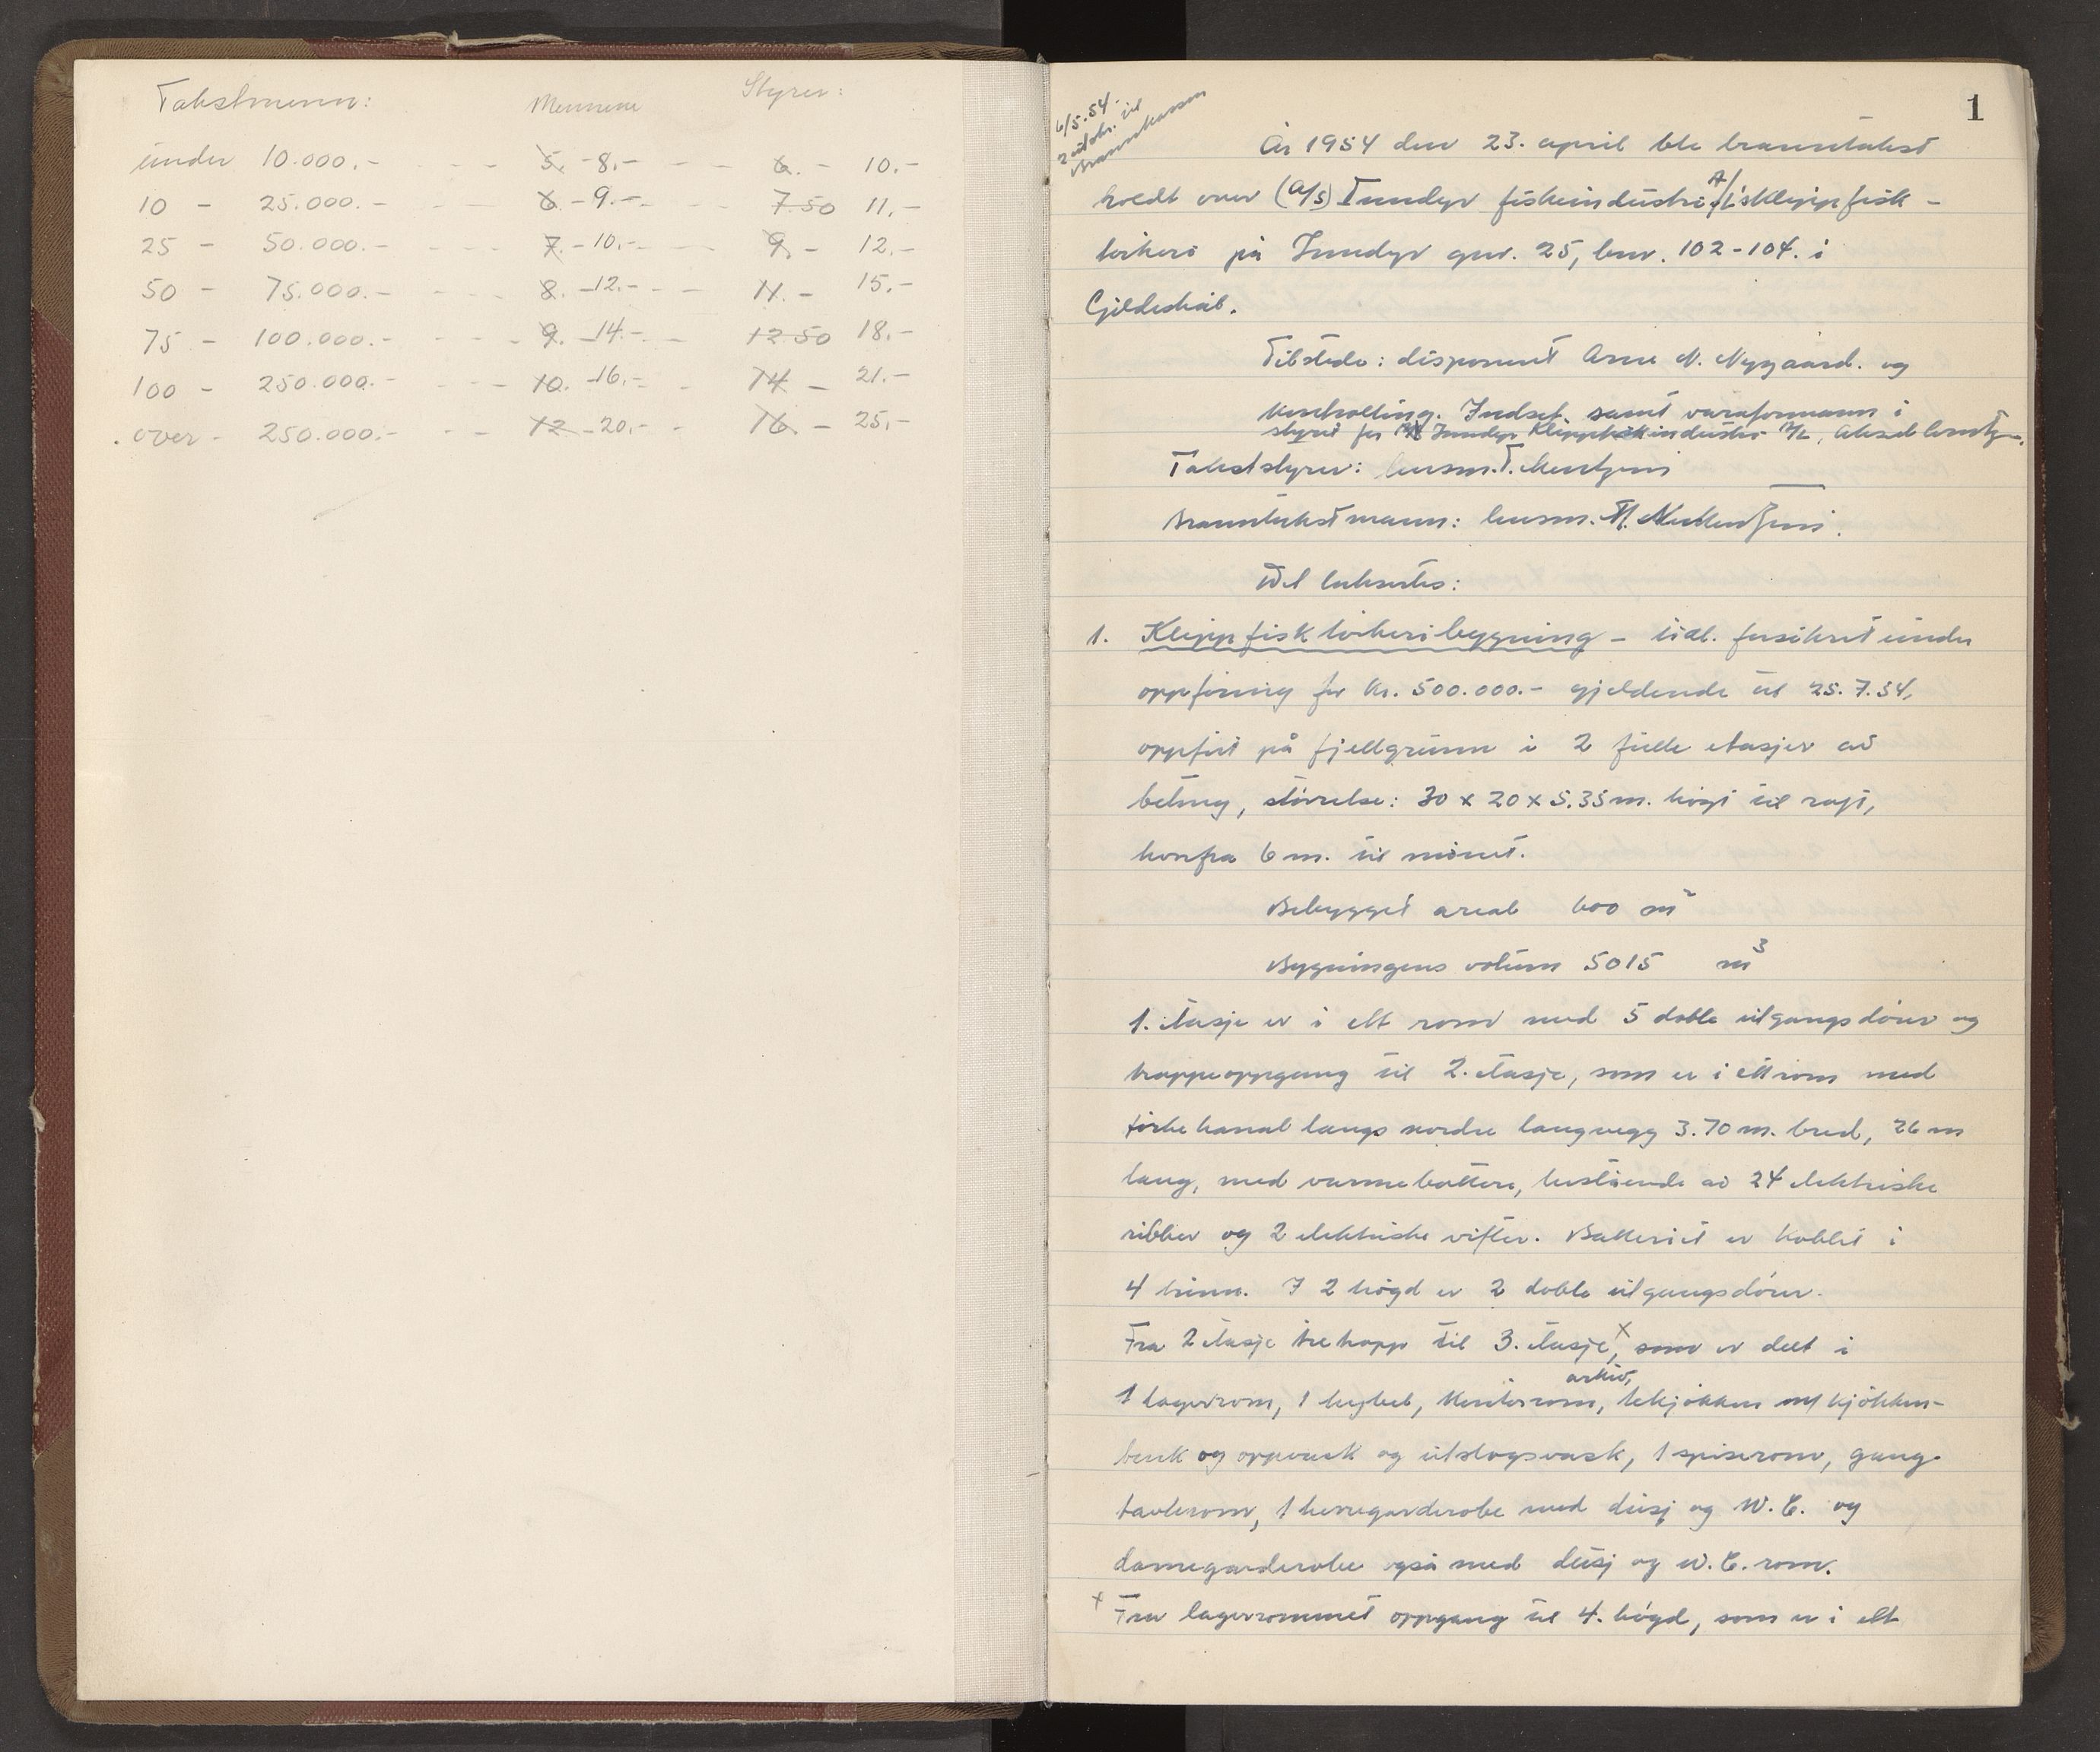 Takstmenn: Mennene Styrer:
under 10.000.- - - - 5. - 8.- - - - 6. - 10.-
10 - 25.000.- - - - 6. - 9.- - - - 7.50 11.-
25 - 50.000.- - - - 7. - 10.- - - - 9. - 12.-
50 - 75.000.- - - - 8. - 12.- - - - 11. - 15.-
75 - 100.000.- - - - 9. - 14.- - - 12.50 18.-
100 - 250.000.- - - - 10. - 16.- - 14 - 21.-
over - 250.000.- - - 12 - 20.- - 16. - 25.-
1
6/5.54.
2 utskr. til
Brannkassen
År 1954 den 23. april ble branntakst
holdt over (A/S) Inndyr fiskeindustri A/L's klippfisk-
tørkeri på Inndyr gnr. 25, bnr. 102-104. i
Gildeskål.
Tilstede: disponent Arne N. Nygaard. og
Indset. samt varaformann i
styret for Inndyr Klippfiskindustri A/L, Aksel
Takststyrer: lensm. T.
Branntakstmann: lensm.
Det taksertes:
1. Klippfisktørkeribygning - tidl. forsikret under
oppføring for kr. 500.000.- gjeldende til 25.7.54,
oppført på fjellgrunn i 2 fulle etasjer av
betong, størrelse: 30 x 20 x 5.35 m. høgt til raft,
herfra 6 m. til mønet.
Bebygget areal 600 m²
Bygningens volum 5015 m³
1. etasje er i ett rom med 5 doble utgangsdører og
trappeoppgang til 2. etasje, som er i ett rom med
tørkekanal langs nordre langvegg 3.70 m. bred, 26 m
lang, med varmebatteri, bestående av 24 elektriske
ribber og 2 elektriske vifter. Batteriet er koblet i
4 trinn. I 2 høgd er 2 doble utgangsdører.
Fra 2 etasje tretrapp til 3. etasje,x som er delt i
arkiv,
1 lagerrom, 1 hybel, kontorrom, tekjøkken m/ kjøkken-
benk og oppvask og utslagsvask, 1 spiserom, gang
tavlerom, 1 herregarderobe med dusj og W.C. og
damegarderobe også med dusj og W.C. rom.
x Fra lagerrommet oppgang til 4. høgd, som er i ett